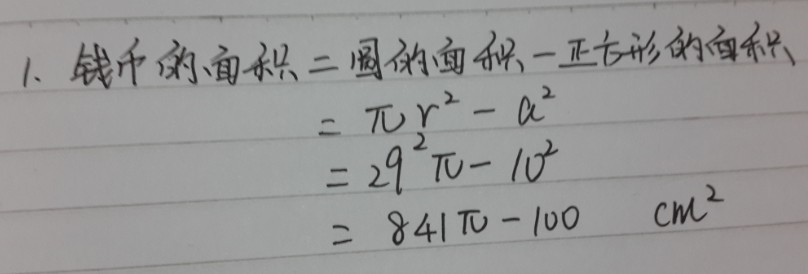 1. 钱币的面积=圆的面积-正方形的面积
= πr² - a²
= 29²π - 10²
= 841π - 100 cm²